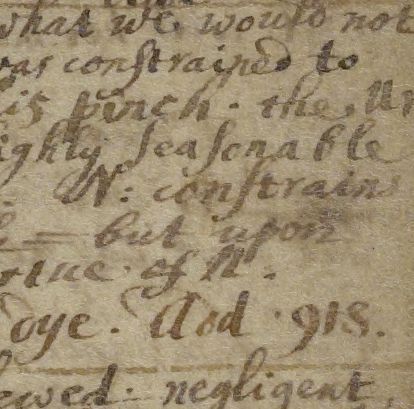 what we would not
was constrained to
is pinch. the
ighly seasonable
N: constrains
= but upon
rtue of
doye. 918.
ewed. negligent,